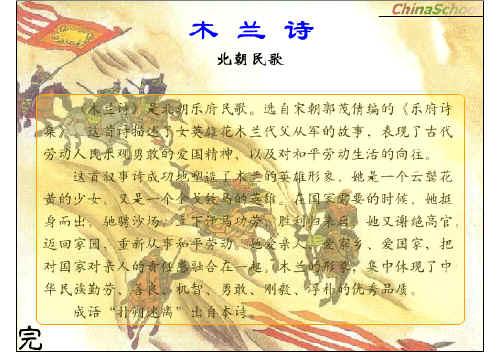 ChinaSchoo
木 兰 诗
北朝民歌
《木兰诗》是北朝乐府民歌。选自宋朝郭茂倩编的《乐府诗
集》。这首诗描述了女英雄花木兰代父从军的故事，表现了古代
劳动人民乐观勇敢的爱国精神，以及对和平劳动生活的向往。
这首叙事诗成功地塑造了木兰的英雄形象。她是一个云鬓花
黄的少女，又是一个金戈铁马的英雄。在国家需要的时候，她挺
身而出，驰骋沙场，立下汗马功劳。胜利归来后，她又谢绝高官，
返回家园，重新从事和平劳动。她爱亲人、爱家乡、爱国家，把
对国家对亲人的责任感融合在一起。木兰的形象，集中体现了中
华民族勤劳、善良、机智、勇敢、刚毅、淳朴的优秀品质。
成语“扑朔迷离”出自本诗。
完